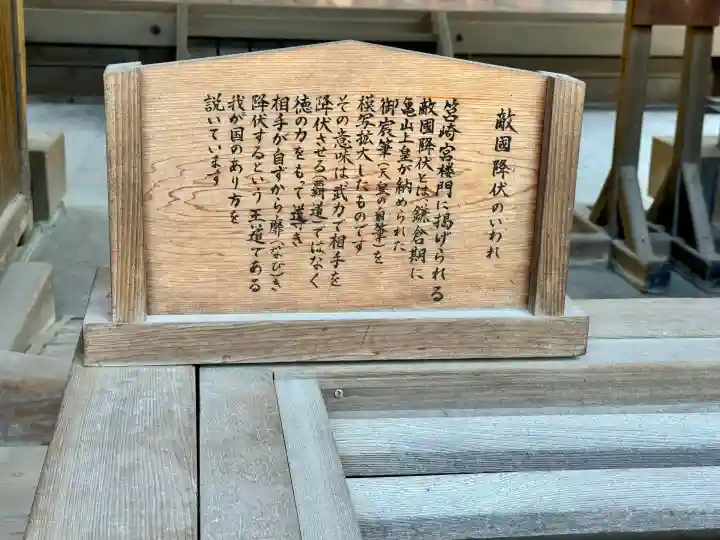 敵國降伏のいわれ
筥崎宮楼門に掲げられる
敵國降伏とは鎌倉期に
亀山上皇が納められた
御宸筆(天皇の自筆)を
模写拡大したものです
その意味は武力で相手を
降伏させる(覇道)ではなく
徳の力をもって導き
相手が自ずから靡(なび)き
降伏するという王道である
我が国のあり方を
説いています